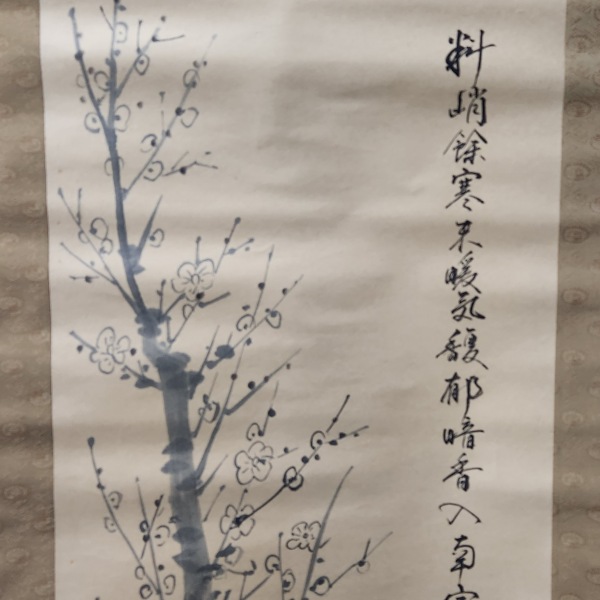 料峭餘寒未暖気馥郁暗香入南